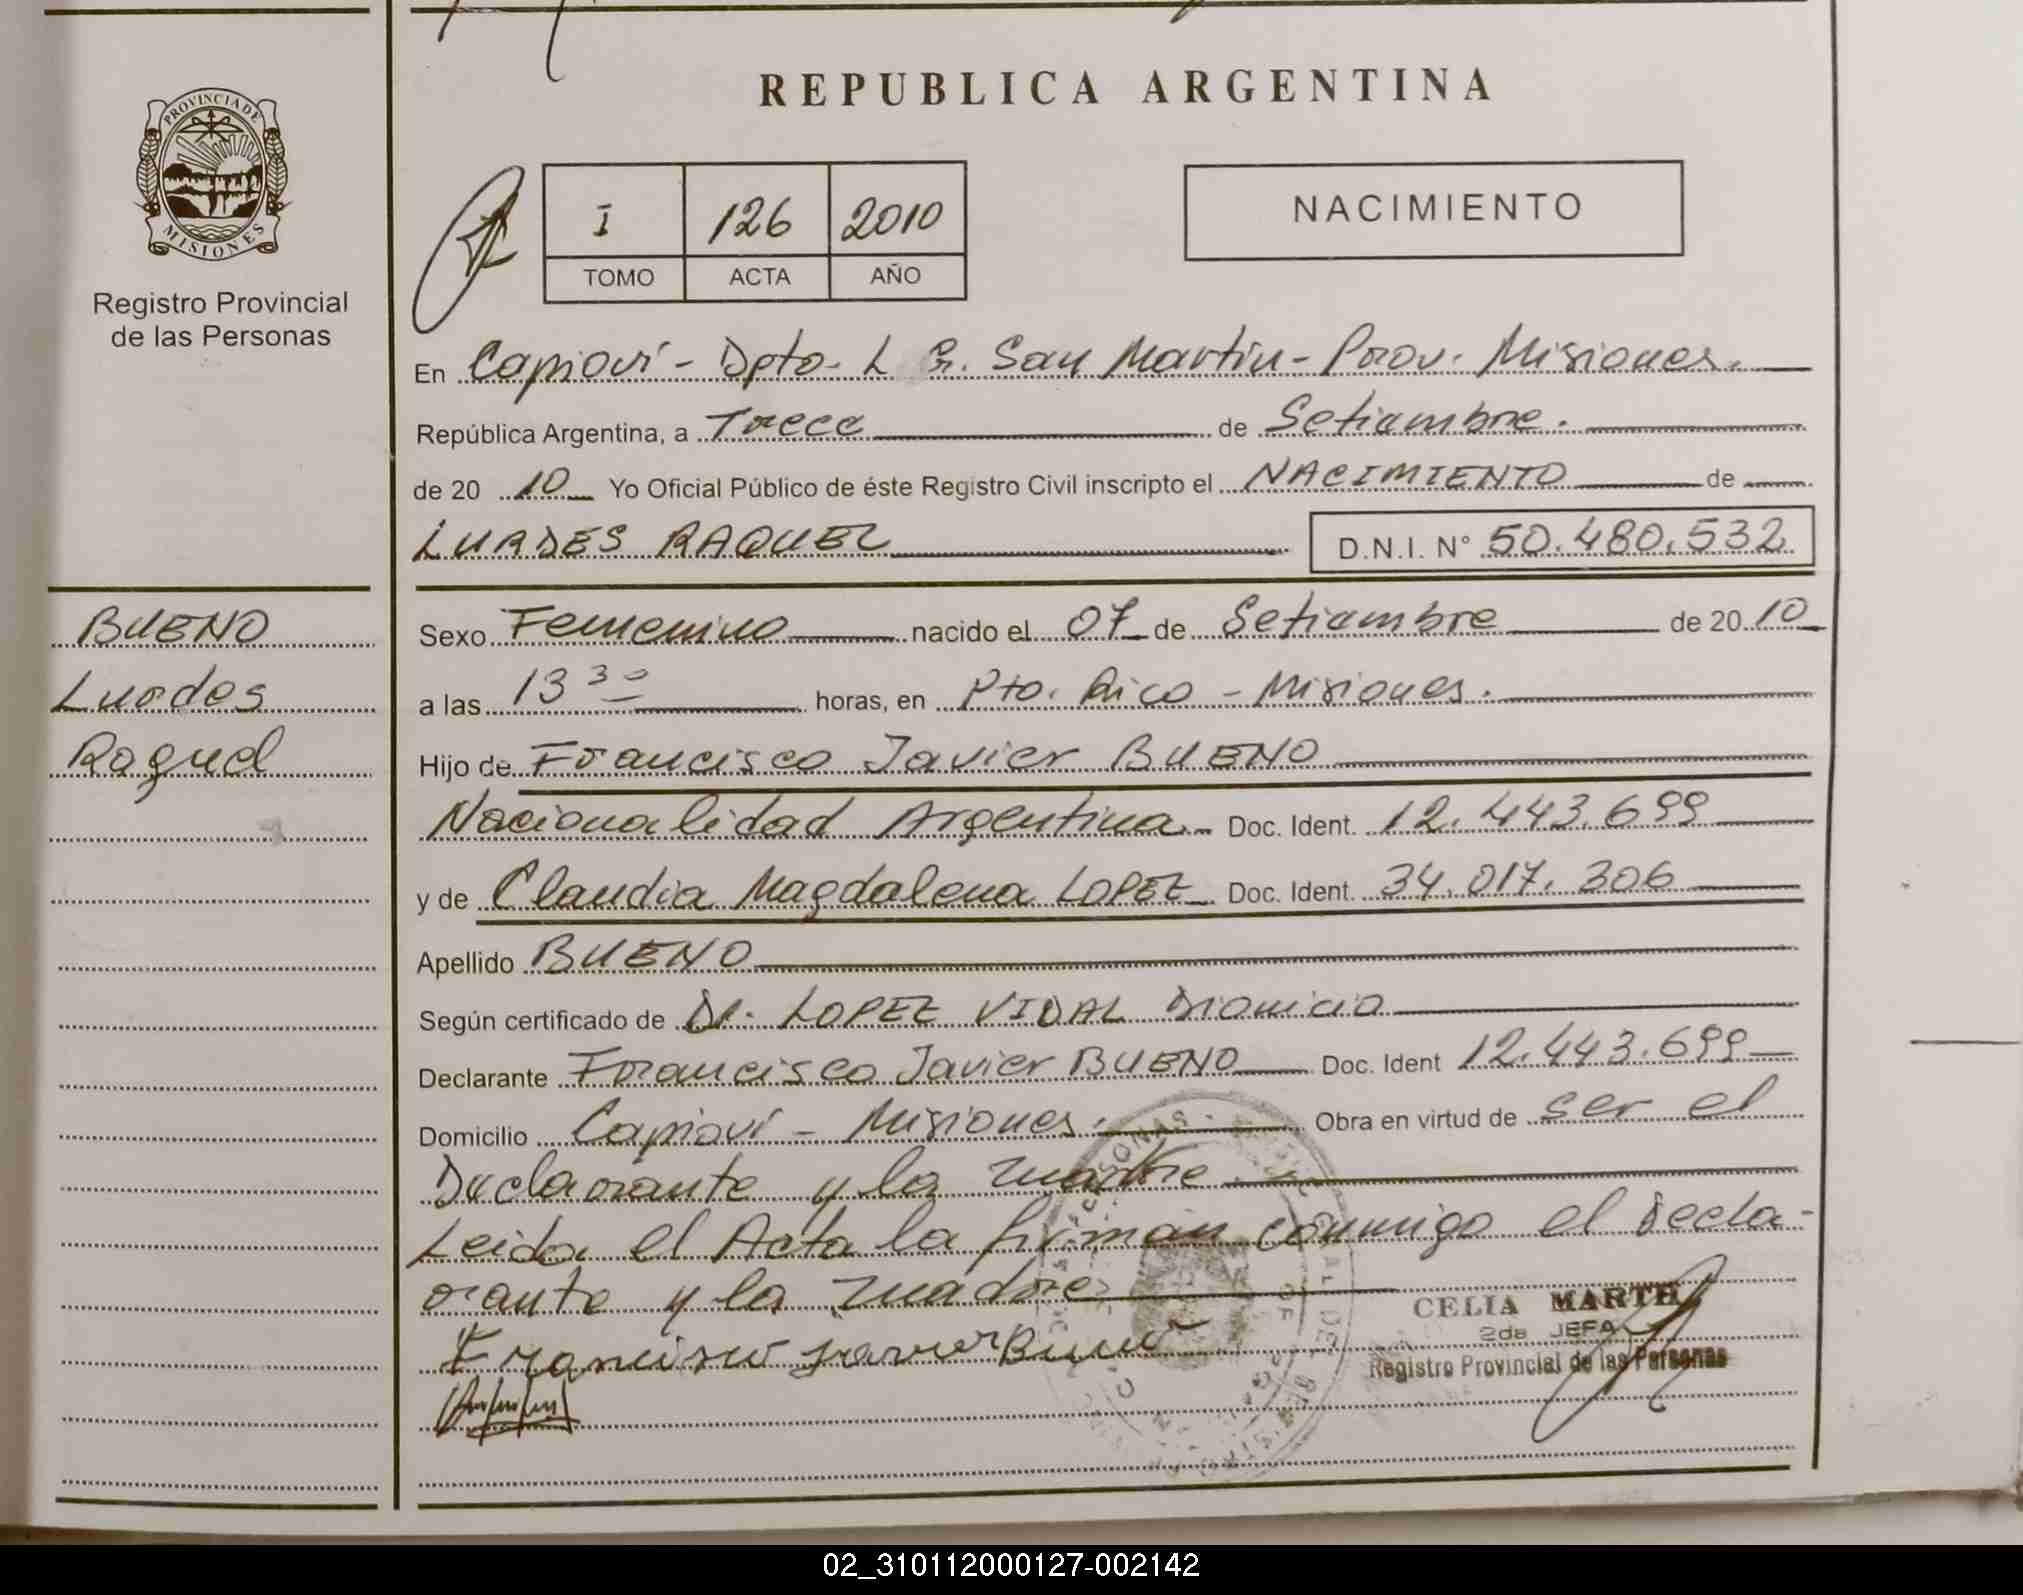 PROVINCIA DE
MISIONES
Registro Provincial
de las Personas
BUENO
Lurdes
Raquel
REPUBLICA ARGENTINA
I 126 2010
TOMO ACTA AÑO
NACIMIENTO
En Capioví - Dpto. L G. San Martin - Prov. Misiones.
República Argentina, a Trece de Setiembre.
de 20 10 Yo Oficial Público de éste Registro Civil inscripto el NACIMIENTO de
LURDES RAQUEL D.N.I. N° 50.480.532
Sexo Femenino nacido el 07 de Setiembre de 20 10
a las 13 30 horas, en Pto. Rico - Misiones.
Hijo de Francisco Javier BUENO
Nacionalidad Argentina. Doc. Ident. 12.443.699
y de Claudia Magdalena LOPEZ Doc. Ident. 34.017.306
Apellido BUENO
Según certificado de Dr. LOPEZ VIDAL Dionicio
Declarante Francisco Javier BUENO Doc. Ident 12.443.699
Domicilio Capioví - Misiones. Obra en virtud de ser el
Declarante y la madre.
Leida el Acta la firman conmigo el Decla-
rante y la madre
Francisco Javier Bueno
CELIA MARTH
2da JEFA
Registro Provincial de las Personas
02_310112000127-002142